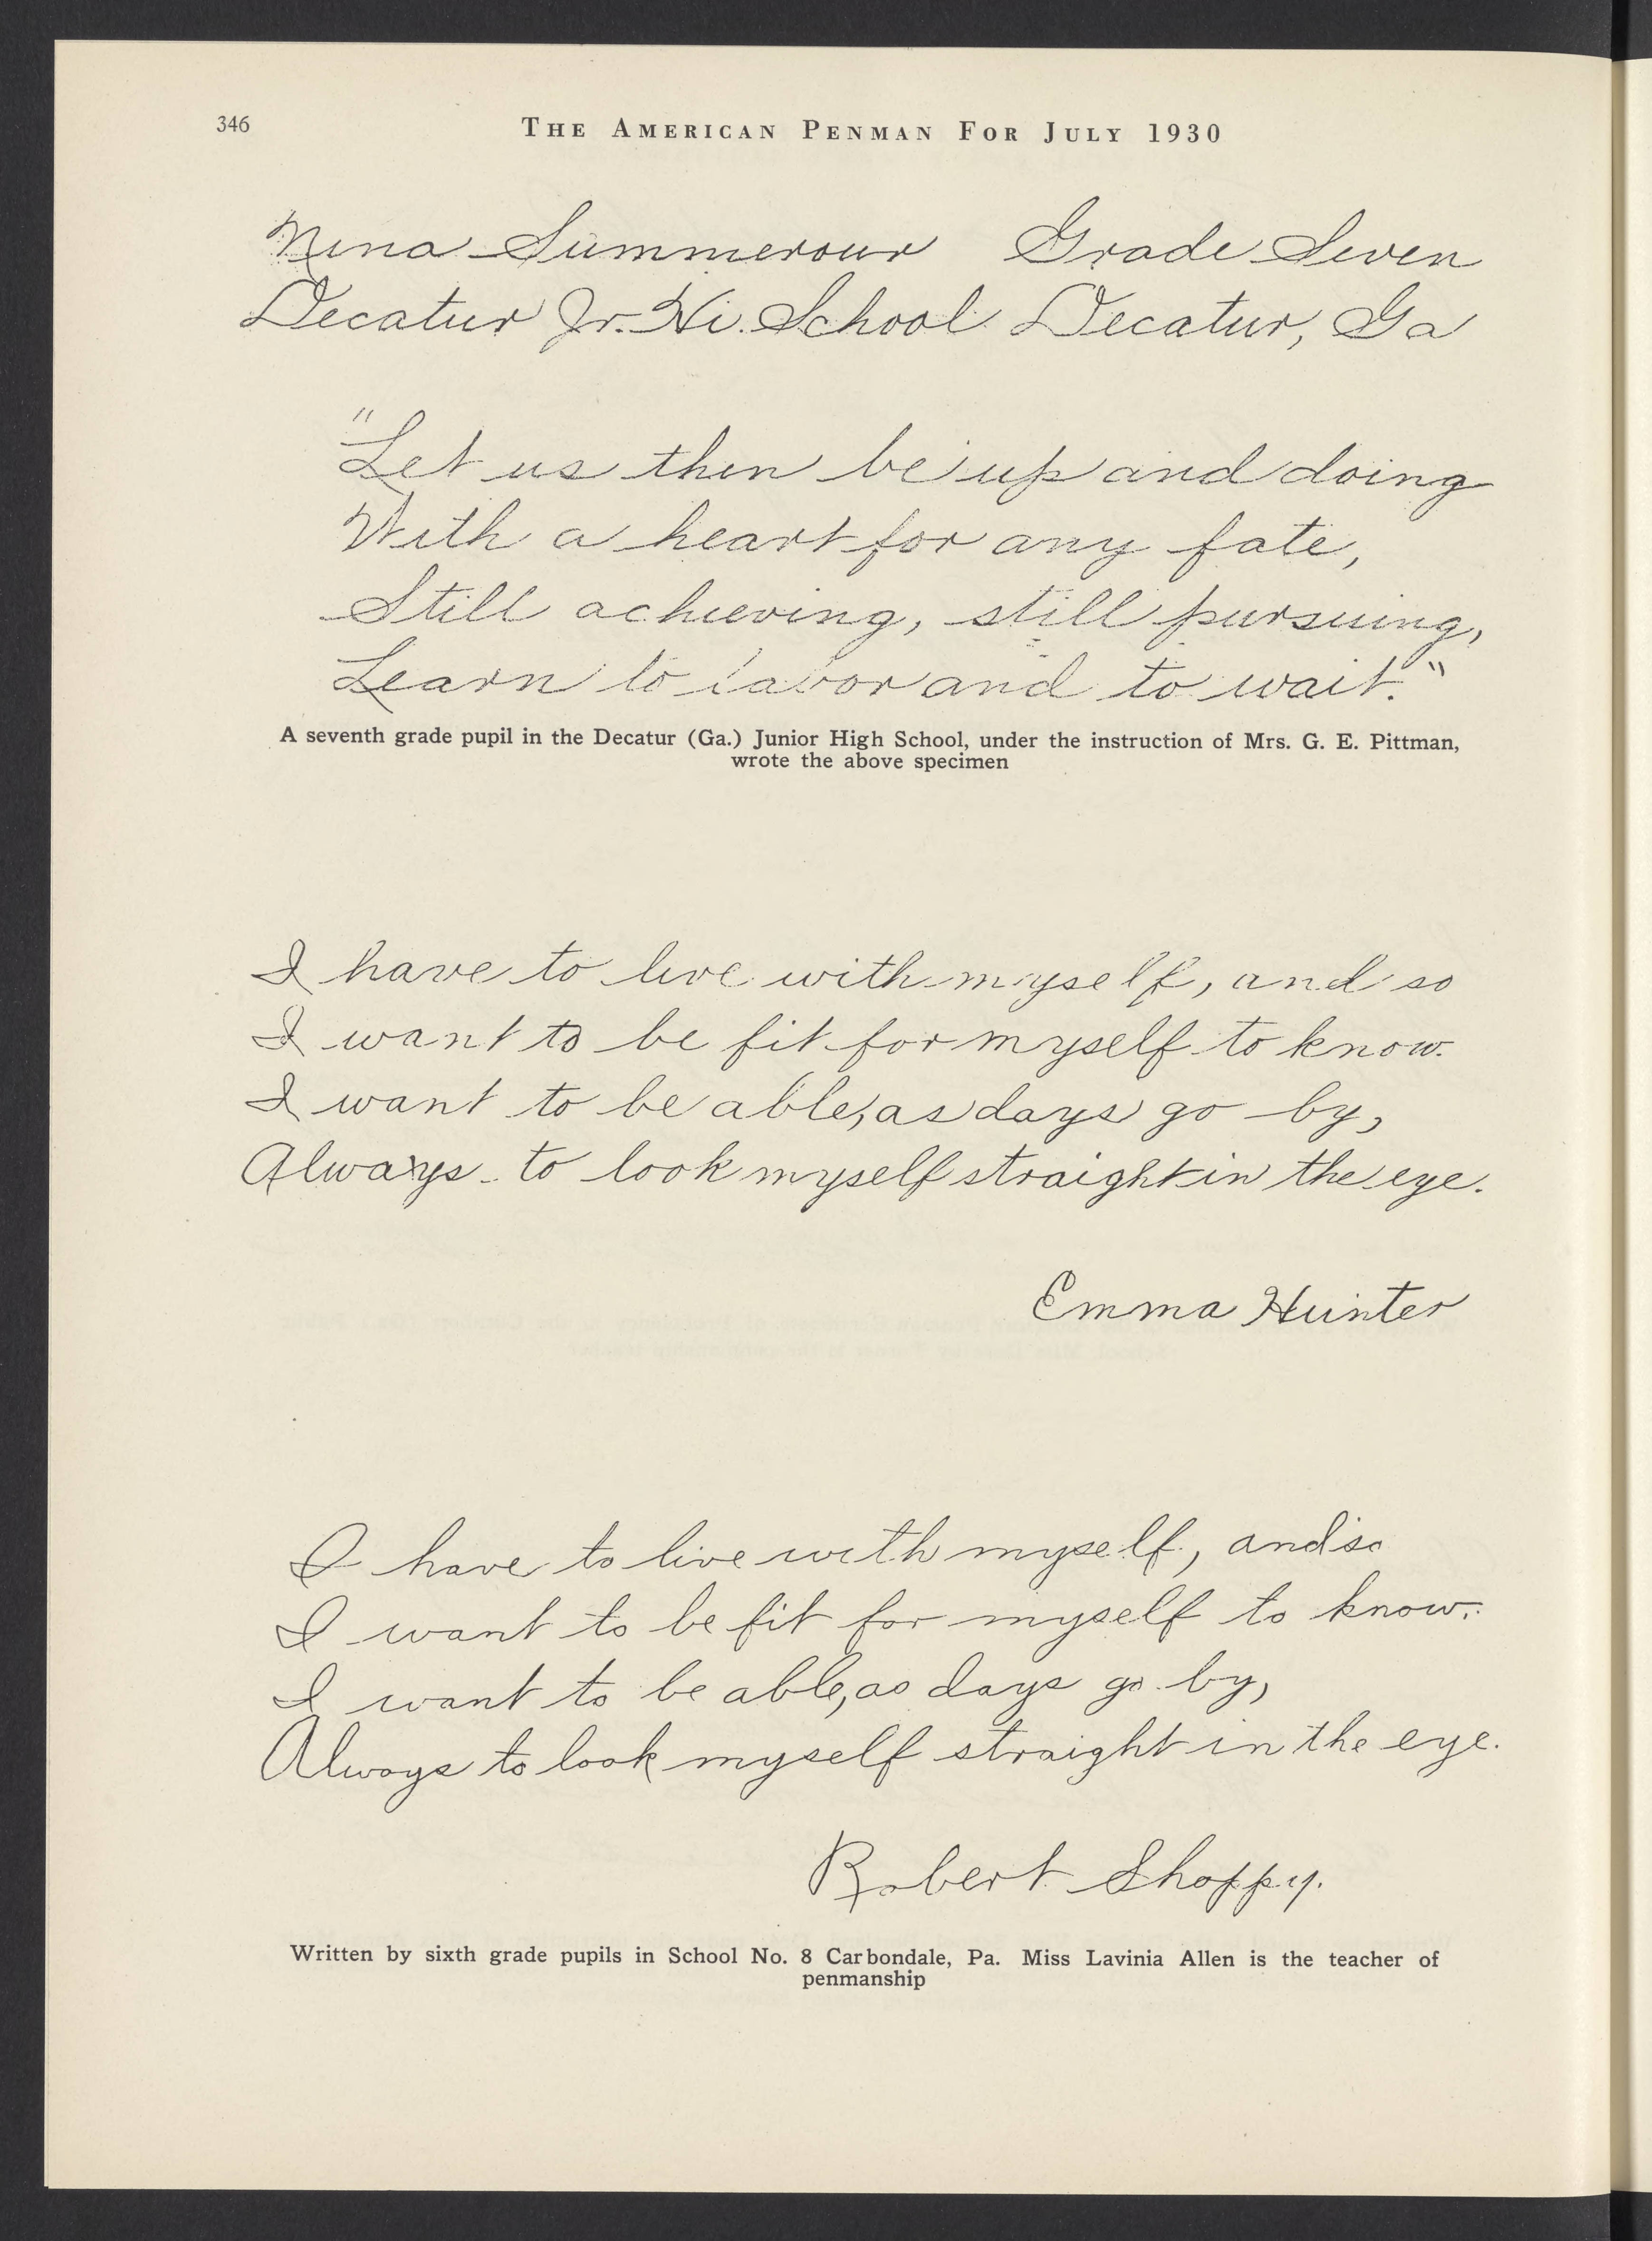 346
THE AMERICAN PENMAN FOR JULY 1930
Nina Summerour Grade Seven
Decatur Jr. Hi. School Decatur, Ga
"Let us then be up and doing
With a heart for any fate,
Still achieving, still pursuing,
Learn to labor and to wait."
A seventh grade pupil in the Decatur (Ga.) Junior High School, under the instruction of Mrs. G. E. Pittman,
wrote the above specimen
I have to live with myself, and so
I want to be fit for myself to know.
I want to be able, as days go by,
Always to look myself straight in the eye.
Emma Hunter
I have to live with myself, and so
I want to be fit for myself to know.
I want to be able, as days go by,
Always to look myself straight in the eye.
Robert Shoppy.
Written by sixth grade pupils in School No. 8 Carbondale, Pa. Miss Lavinia Allen is the teacher of
penmanship